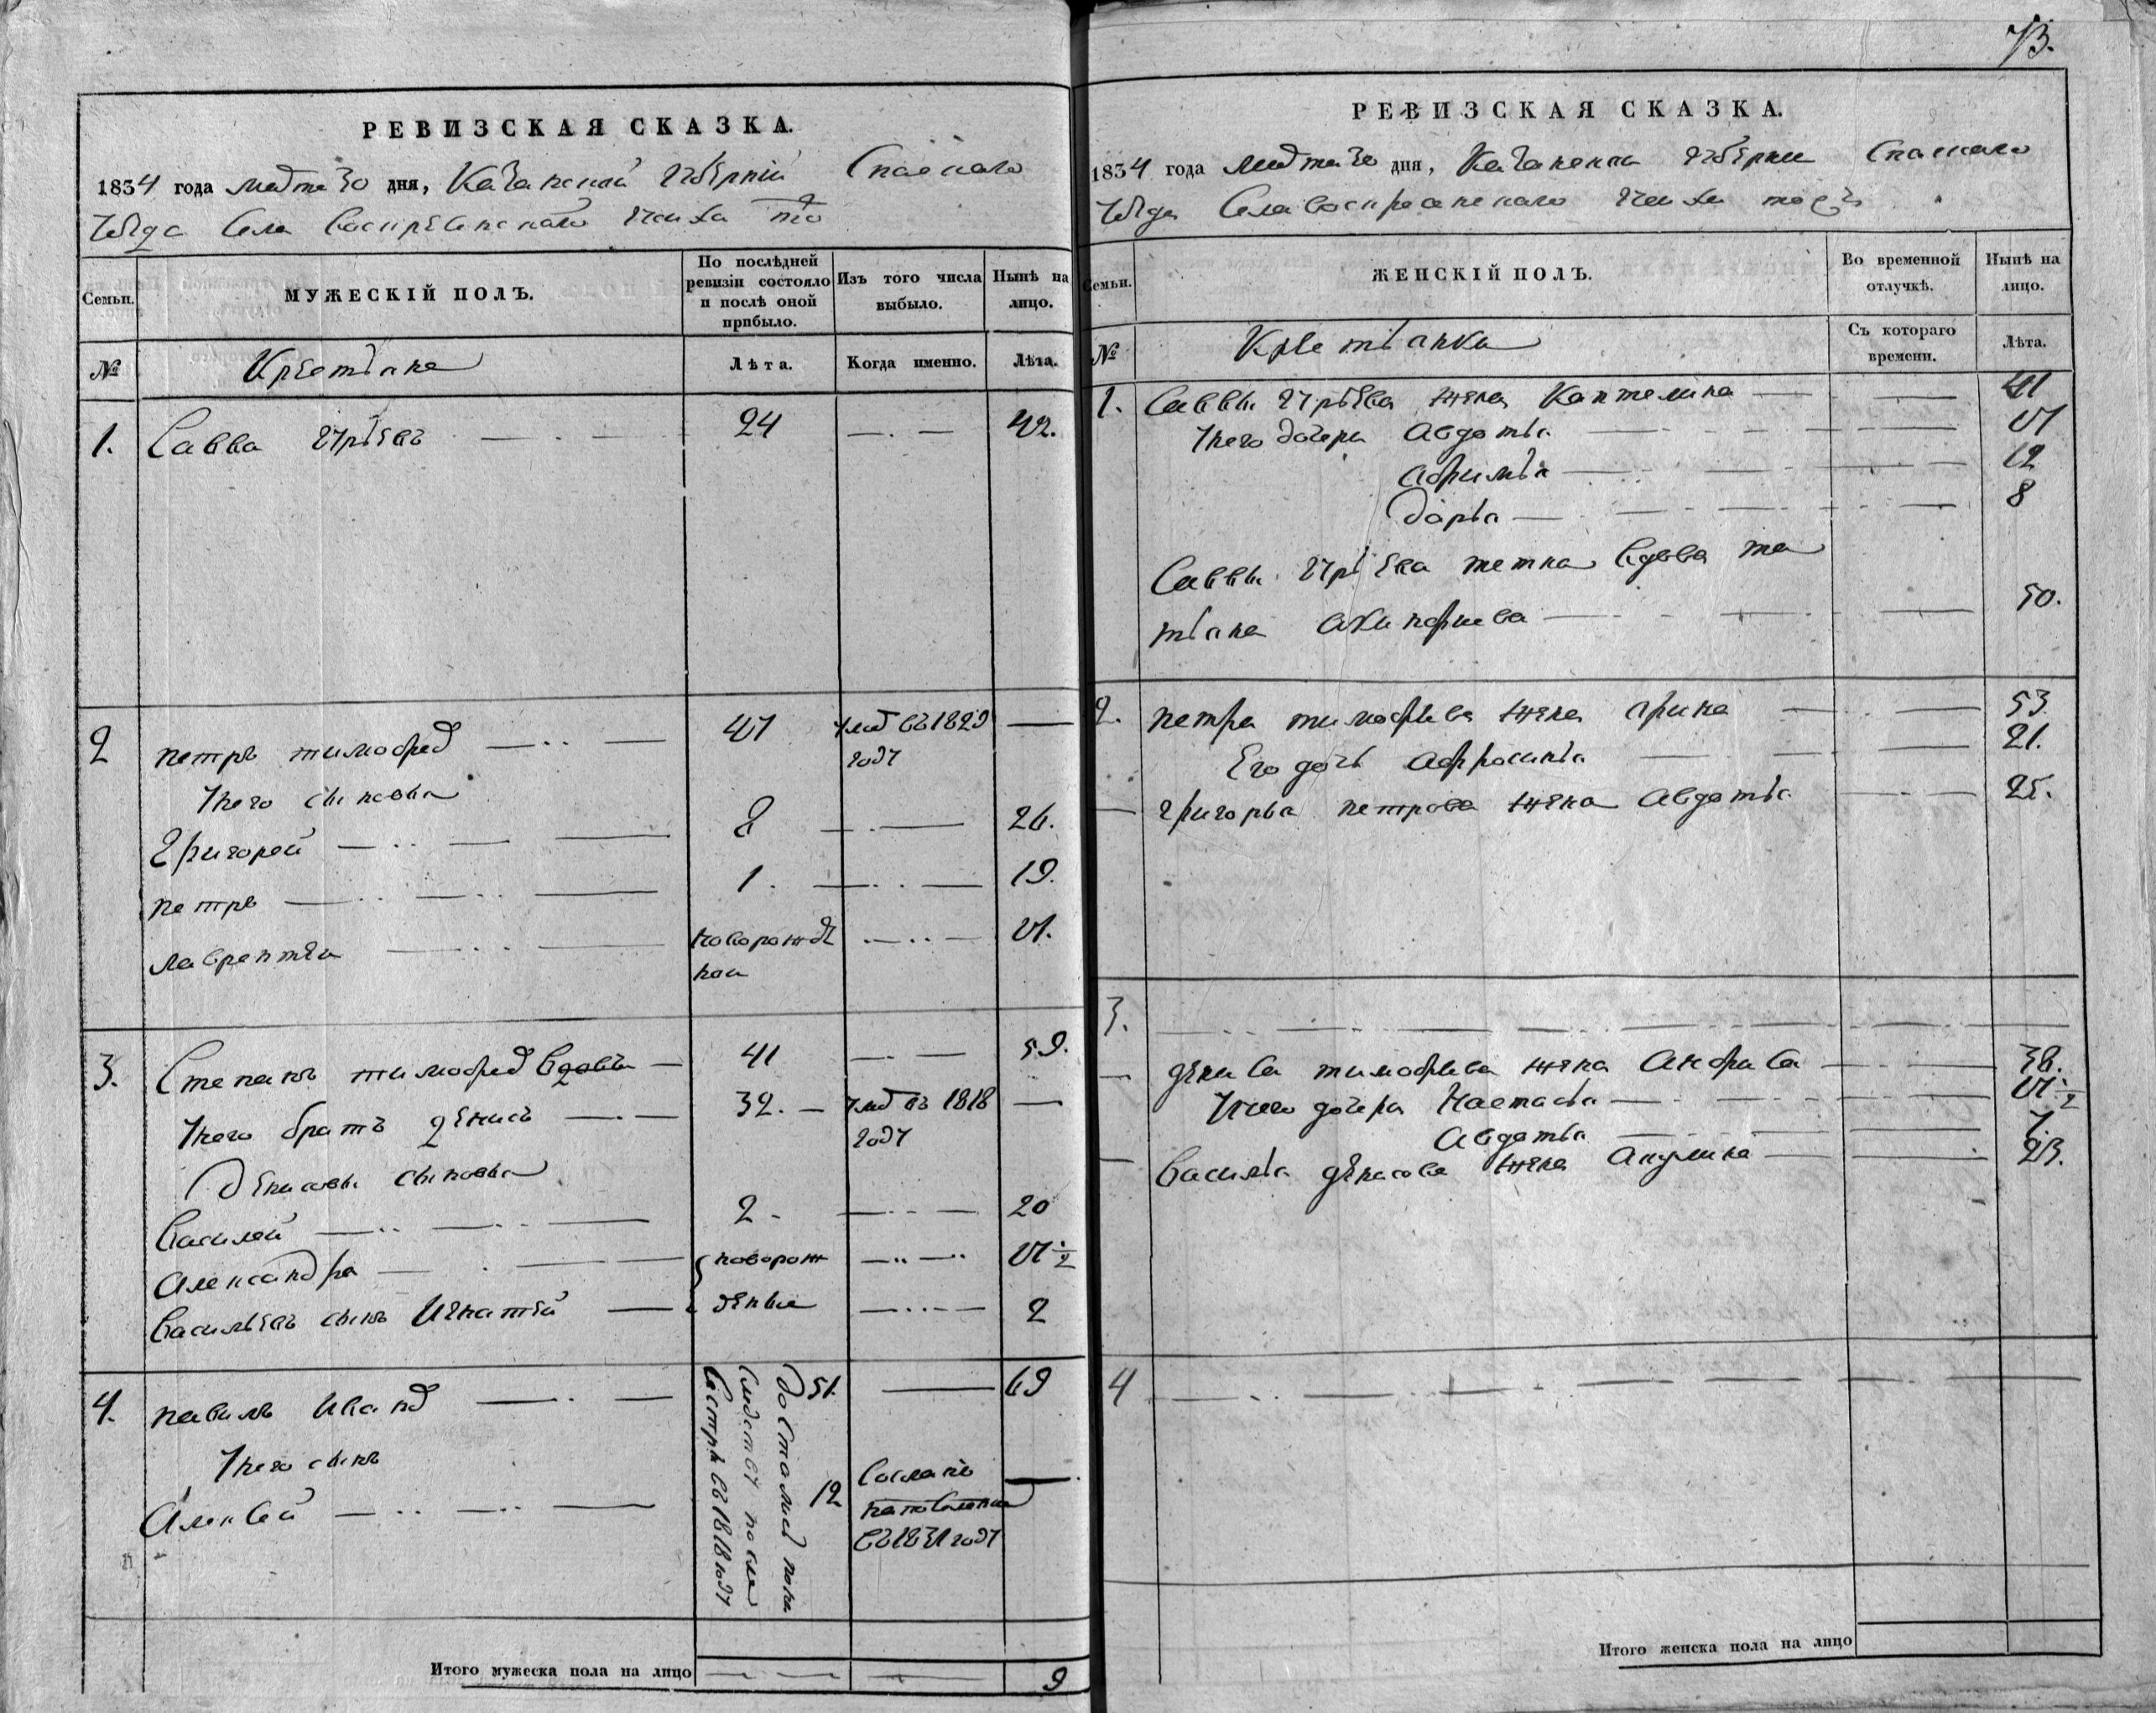 РЕВИЗСКАЯ СКАЗКА.
1834 года дня, Казанской губернии Спаскаго
уезда Села Воскресенскаго
Семьи.
МУЖЕСКІЙ ПОЛЪ.
По послѣдней ревизіи состояло и послѣ оной прибыло.
Изъ того числа выбыло.
Нынѣ на лицо.
№
Крестіяне
Лѣта.
Когда именно.
Лѣта.
1. Савва Гурієвъ 24 42.
2 петръ тимофеев 47 умер въ 1829
году
у него сыновья
Григорей 8 26.
петръ 1. 19.
лаврентей новорожде
ной
3. Степанъ тимофеев вдовъ 41 59.
у него братъ денисъ 32. умер въ 1818
году
Денисовы сыновья
Василей 2 20
Александра новорож
Васильевъ сынъ Игнатей деные 2
4. павилъ Иванов 51. 69
у него сынъ
Алексей 12 Сосланъ
на поселение
въ 1831 году
после
сестры въ 1818 году
Итого мужеска пола на лицо 9
73.
РЕВИЗСКАЯ СКАЗКА.
1834 года дня, Казанской губернии Спаскаго
уезда Села Воскресенскаго
Семьи.
ЖЕНСКІЙ ПОЛЪ.
Во временной отлучкѣ.
Нынѣ на лицо.
№
Крестіянки
Съ котораго времени.
Лѣта.
1. Саввы Гурієва жена Каптелина 41
у него дочери Авдотья
Афимья 12
Дарья 8
Саввы Гурієва тетка вдова та
тіана Акинфиева 50.
2. петра тимофеева жена Арина 53
Его дочь Афросинья 21.
григорья петрова жена Авдотья 25.
3.
дениса тимофеева жена Анфиса 38.
у него дочери Настасья
Авдотья 7.
Василья денисова жена Акулина 23.
4
Итого женска пола на лицо